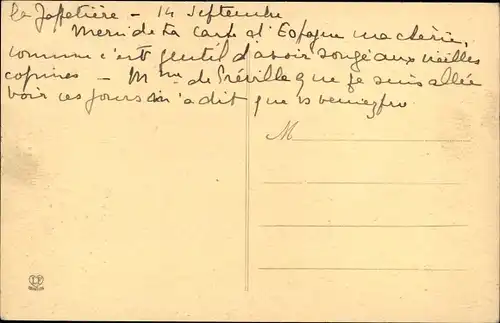 la Jaffetière - 14 Septembre
Merci de ta carte d'Espagne ma chérie,
comme c'est gentil d'avoir songé aux vieilles
copines - Mme de Préville que je suis allée
voir ces jours m'a dit que vs veniez
M